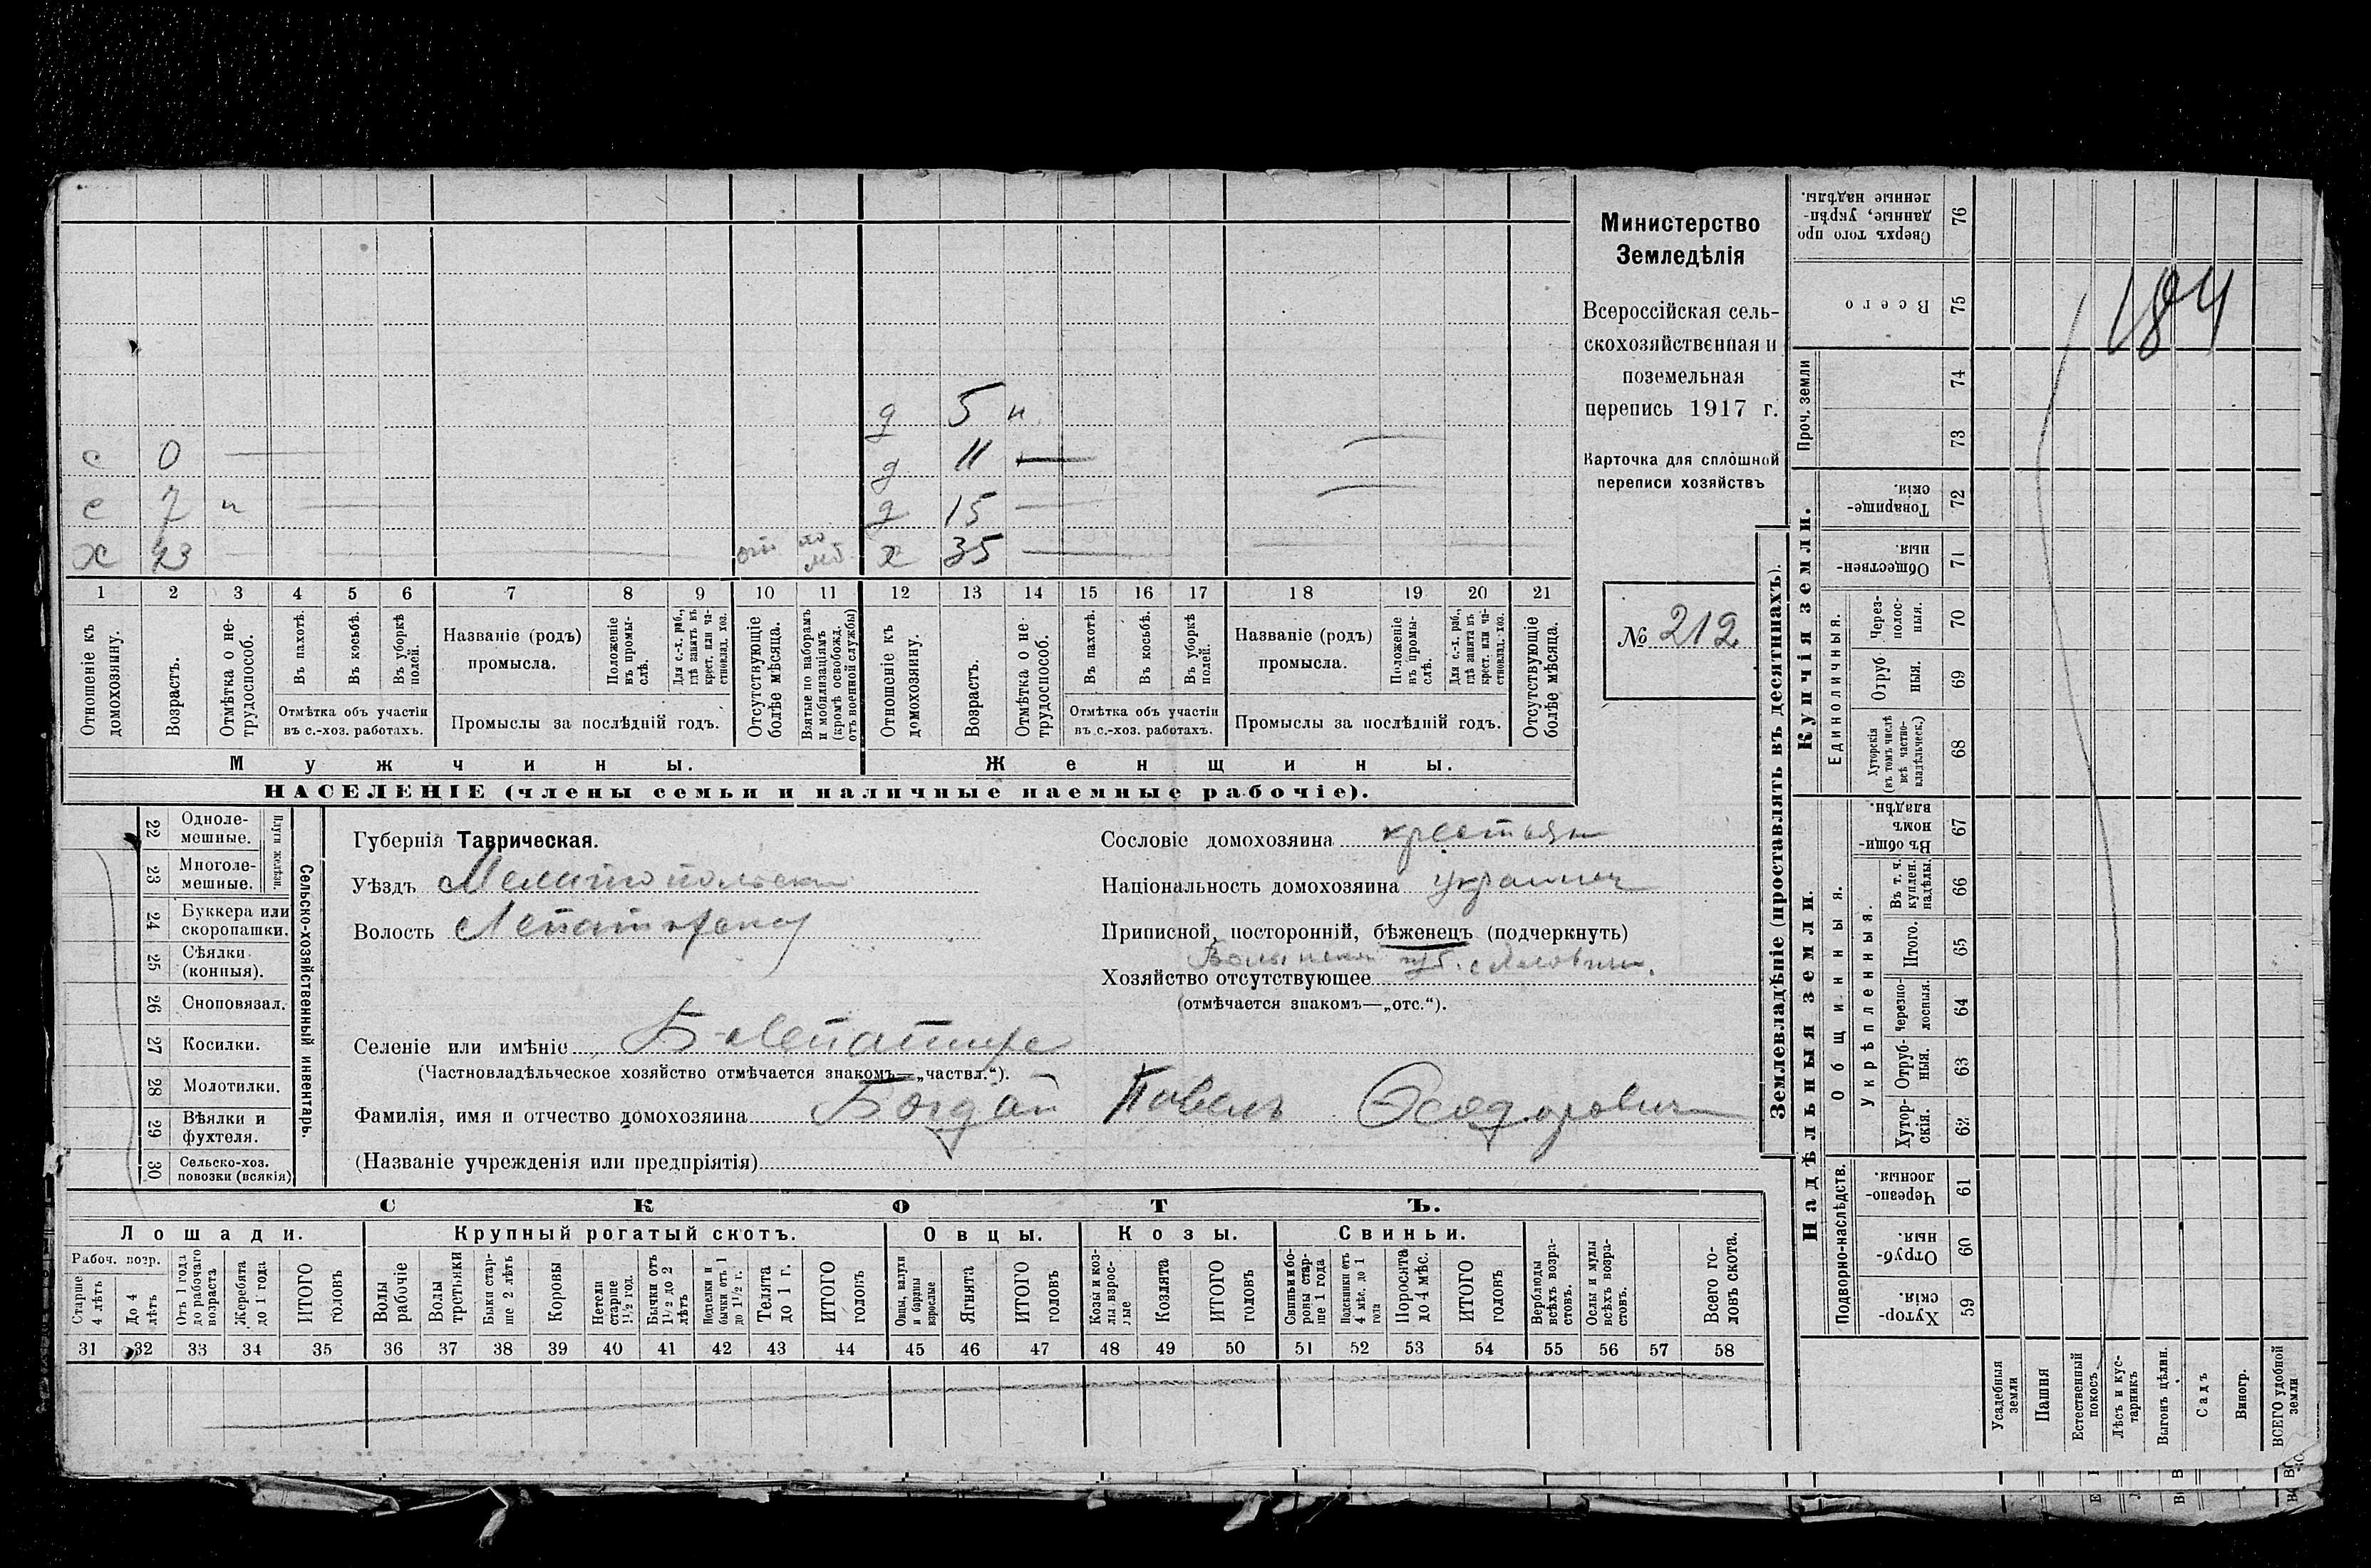 Министерство
Земледѣлія
Всероссійская сель-
скохозяйственная и
поземельная
перепись 1917 г.
Карточка для сплошной
переписи хозяйствъ
№ 212
184
д 5 н
с 0 д 11
с 7 н д 15
х 43 х 35
1 2 3 4 5 6 7 8 9 10 11 12 13 14 15 16 17 18 19 20 21
Отношеніе къ домохозяину.
Возрастъ.
Отмѣтка о не-трудоспособ.
Въ пахотѣ.
Въ косьбѣ.
Въ уборкѣ полей.
Отмѣтка объ участіи
въ с.-хоз. работахъ.
Названіе (родъ)
промысла.
Положеніе въ промы-слѣ.
Для с.-х. раб., гдѣ занятъ въ крест. или ча-стновлад. хоз.
Промыслы за послѣдній годъ.
Отсутствующіе болѣе мѣсяца.
Взятые по наборамъ и мобилизаціямъ (кромѣ освобожд. отъ военной службы)
Отношеніе къ домохозяину.
Возрастъ.
Отмѣтка о не-трудоспособ.
Въ пахотѣ.
Въ косьбѣ.
Въ уборкѣ полей.
Отмѣтка объ участіи
въ с.-хоз. работахъ.
Названіе (родъ)
промысла.
Положеніе въ промы-слѣ.
Для с.-х. раб., гдѣ занята въ крест. или ча-стновлад. хоз.
Промыслы за послѣдній годъ.
Отсутствующіе болѣе мѣсяца.
Мужчины. Женщины.
НАСЕЛЕНІЕ (члены семьи и наличные наемные рабочіе).
Сельско-хозяйственный инвентарь.
Плуги желѣзн.
22 Одноле-мешные.
23 Многоле-мешные.
24 Буккера или скоропашки.
25 Сѣялки (конныя).
26 Сноповязал.
27 Косилки.
28 Молотилки.
29 Вѣялки и фухтеля.
30 Сельско-хоз. повозки (всякія)
Губернія Таврическая.
Уѣздъ Мелитопольскій
Волость
Сословіе домохозяина крестьян
Національность домохозяина украинец
Приписной, посторонній, бѣженецъ (подчеркнуть)
Волынской губ. с.
Хозяйство отсутствующее
(отмѣчается знакомъ—„отс.“).
Селеніе или имѣніе Б-Лепатиха
(Частновладѣльческое хозяйство отмѣчается знакомъ—„частвл.“).
Фамилія, имя и отчество домохозяина Богдай Павелъ Ѳеодоровичъ
(Названіе учрежденія или предпріятія)
СКОТЪ.
Лошади. Крупный рогатый скотъ. Овцы. Козы. Свиньи.
Рабоч. возр.
Старше 4 лѣтъ
До 4 лѣтъ
Отъ 1 года до рабочаго возраста
Жеребята до 1 года
ИТОГО головъ
Волы рабочіе
Волы третьяки
Быки стар-ше 2 лѣтъ
Коровы
Нетели старше 1½ год.
Бычки отъ 1½ до 2 лѣтъ
Подтелки и бычки отъ 1 до 1½ г.
Телята до 1 г.
ИТОГО головъ
Овцы, валухи и бараны взрослые
Ягнята
ИТОГО головъ
Козы и коз-лы взрос-лые
Козлята
ИТОГО головъ
Свиньи и бо-ровы стар-ше 1 года
Подсвинки отъ 4 мѣс. до 1 года
Поросята до 4 мѣс.
ИТОГО головъ
Верблюды всѣхъ возра-стовъ.
Ослы и мулы всѣхъ возра-стовъ.
Всего го-ловъ скота.
31 32 33 34 35 36 37 38 39 40 41 42 43 44 45 46 47 48 49 50 51 52 53 54 55 56 57 58
Землевладѣніе (проставлять въ десятинахъ).
Надѣльныя земли. Купчія земли. Проч. земли
Подворно-наслѣдств.
Общинныя.
Укрѣпленныя.
Единоличныя.
Хутор-скія. 59
Отруб-ныя. 60
Черезпо-лосныя 61
Хутор-скія. 62
Отруб-ныя. 63
Черезпо-лосныя. 64
Итого. 65
Въ т. ч. куплен. надѣлы. 66
Въ общи-номъ владѣн. 67
Хуторскія (въ томъ числѣ всѣ частно-владѣльческ.) 68
Отруб ныя. 69
Через-полос-ныя. 70
Обществен-ныя. 71
Товарище-скія. 72
73
74
Всего 75
Сверхъ того про данные, укрѣп-ленные надѣлы. 76
Усадебныя земли
Пашня
Естественный покосъ
Лѣсъ и кус-тарникъ
Выгонъ цѣлин.
Садъ
Виногр.
ВСЕГО удобной земли